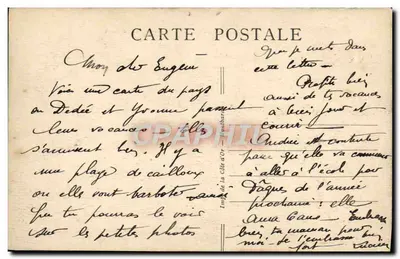 CARTE POSTALE
Mon cher Eugene
Voici une carte du pays
ou Dédée et Yvonne passent
leurs vacances. Elles
s'amusent bien. Il y a
une plage de cailloux
ou elles vont barboter
tu pourras le voir
sur les petites photos
que je mets dans
cette lettre.
Profite bien
aussi de tes vacances
à bien jouer et
courir.
Andrée est contente
parce que elle va commencer
à aller à l'école pour
Pâques de l'année
prochaine; elle
aura 6 ans. Embrasse
bien ta maman pour
moi. Je t'embrasse bien
fort